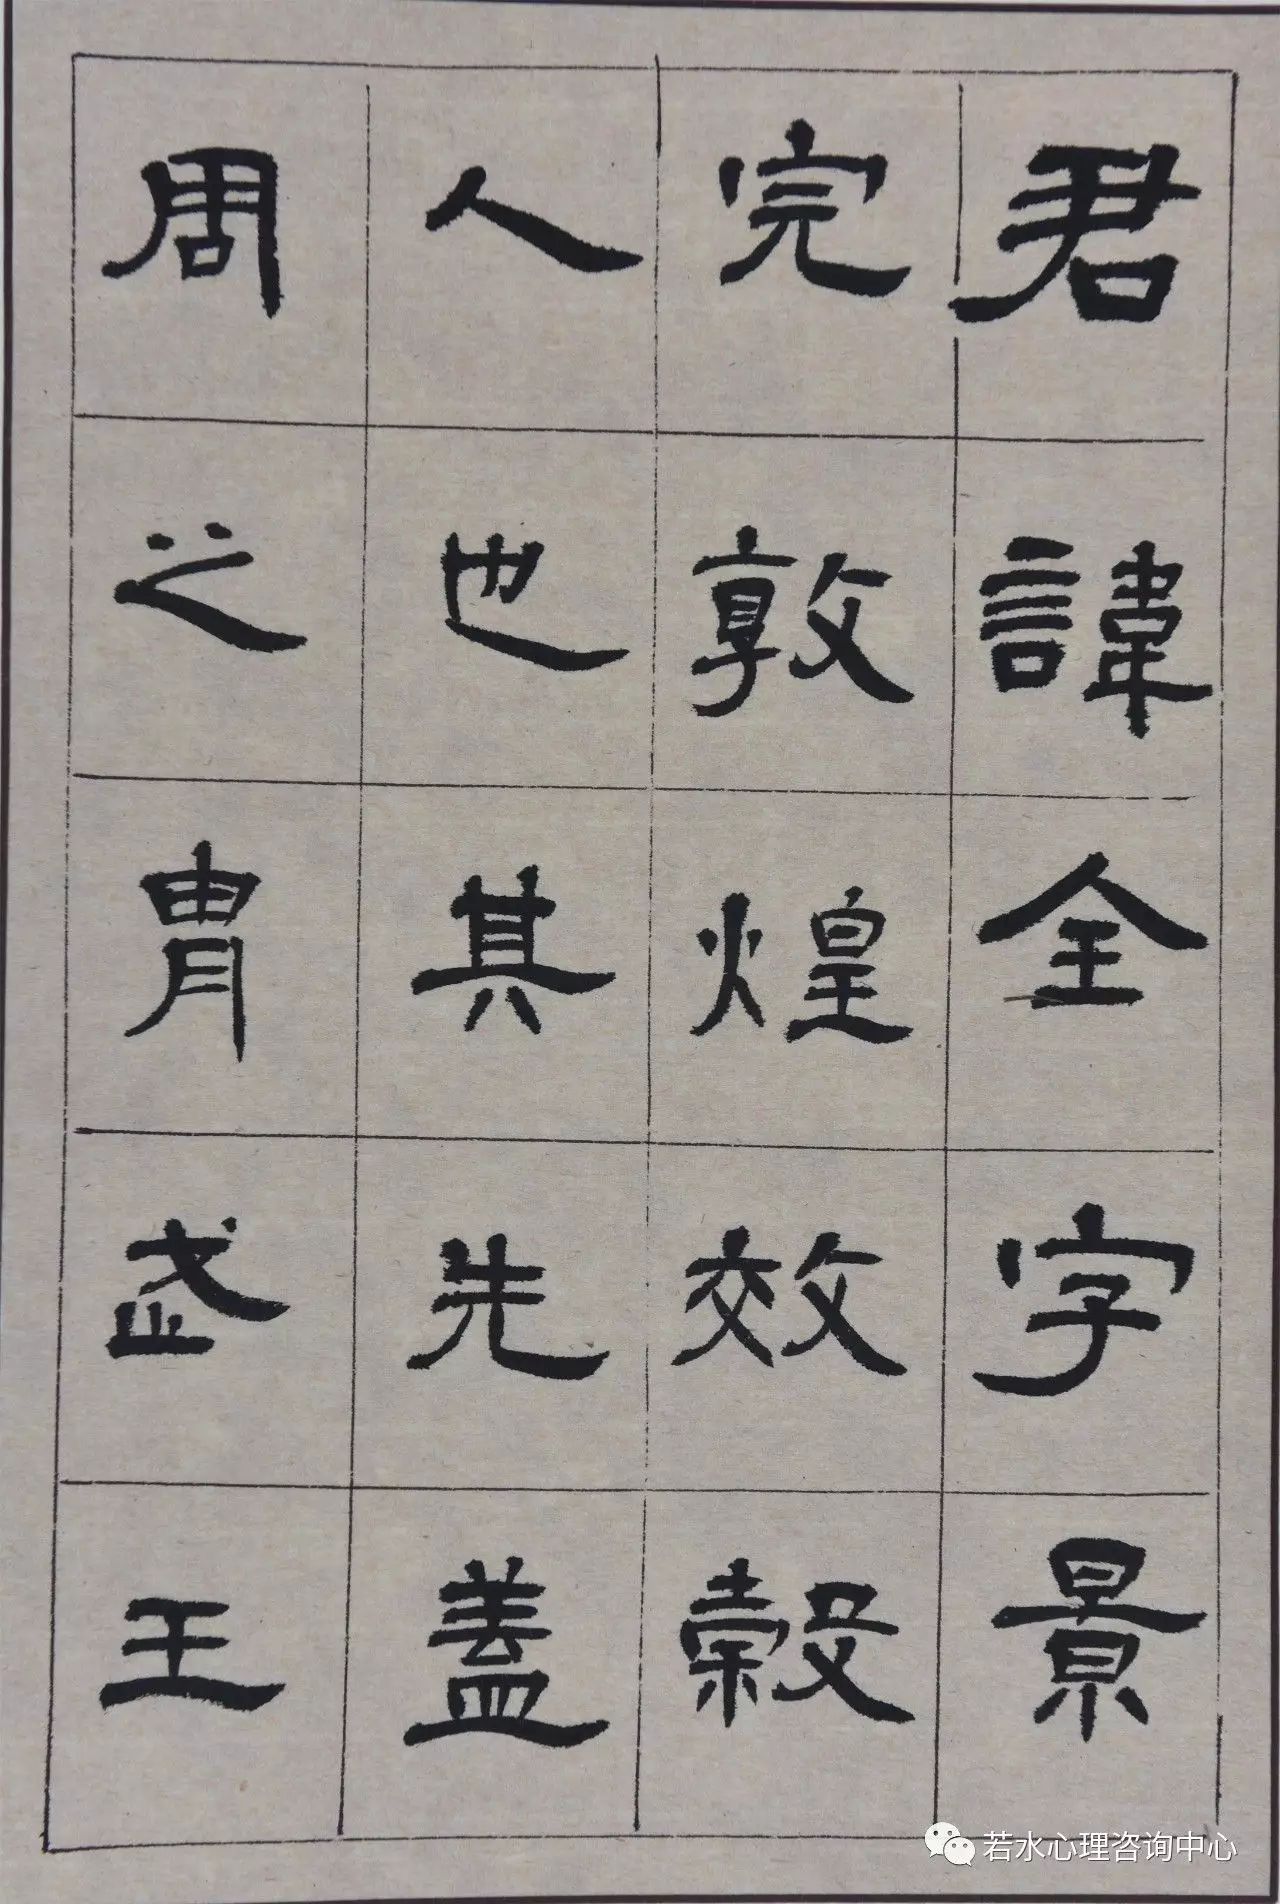 君諱全字景
完敦煌效穀
人也其先蓋
周之胄武王
若水心理咨询中心